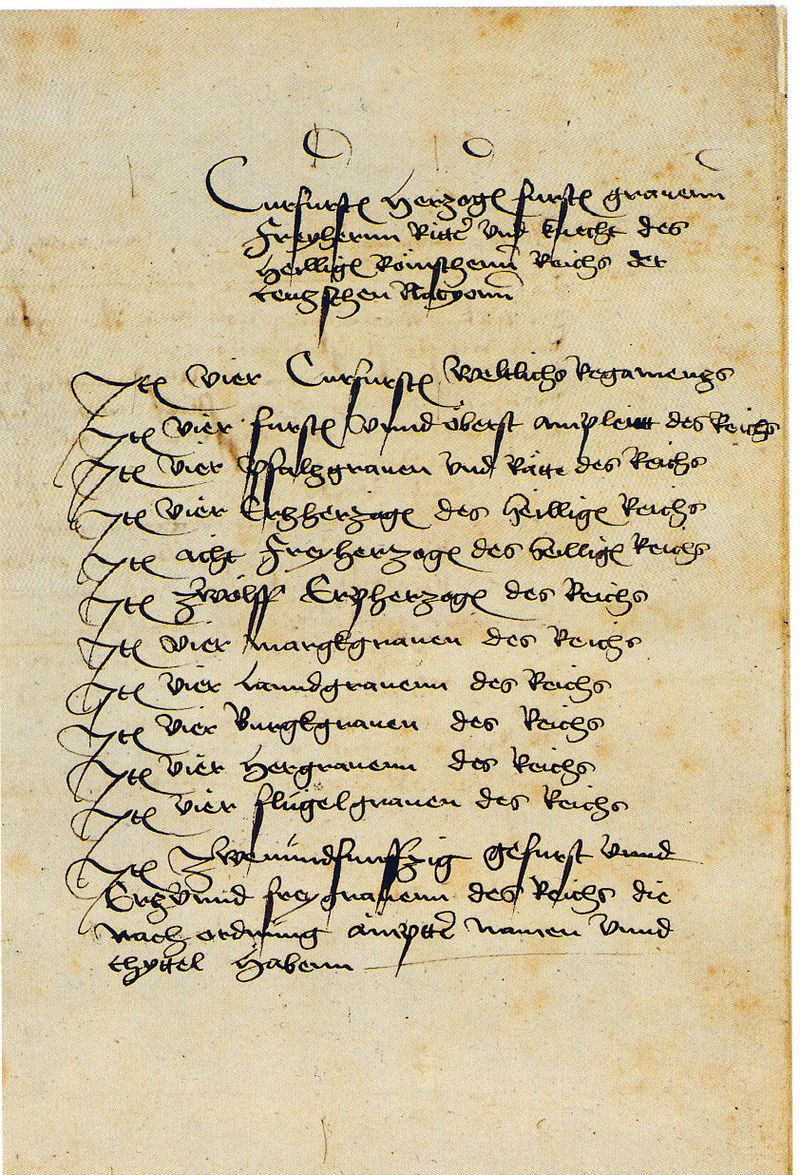 Curfurste Herzoge furste grauenn
Freyherrnn Ritter vnd knecht des
Heillige Römschenn Reichs der
teutzschen Natyonn
Ite vier Curfurste weltlichs Regamentzs
Ite vier furste vnnd öberst ampleutt des Reichs
Ite vier pfaltzgrauen vnd Rätte des Reichs
Ite vier Ertzhertzoge des heillige Reichs
Ite acht Freyhertzoge des heillige Reichs
Ite zwölff Erpherzoge des Reichs
Ite vier margkgrauen des Reichs
Ite vier Lanndgrauenn des Reichs
Ite vier Burgkgrauen des Reichs
Ite vier Hergrauenn des Reichs
Ite vier flügelgrauen des Reichs
Ite Zwenündfunffzig gefurst vnnd
Ertz vnnd freygrauenn des Reichs die
nach ordnüng ämptter namen vnnd
thyttel habenn